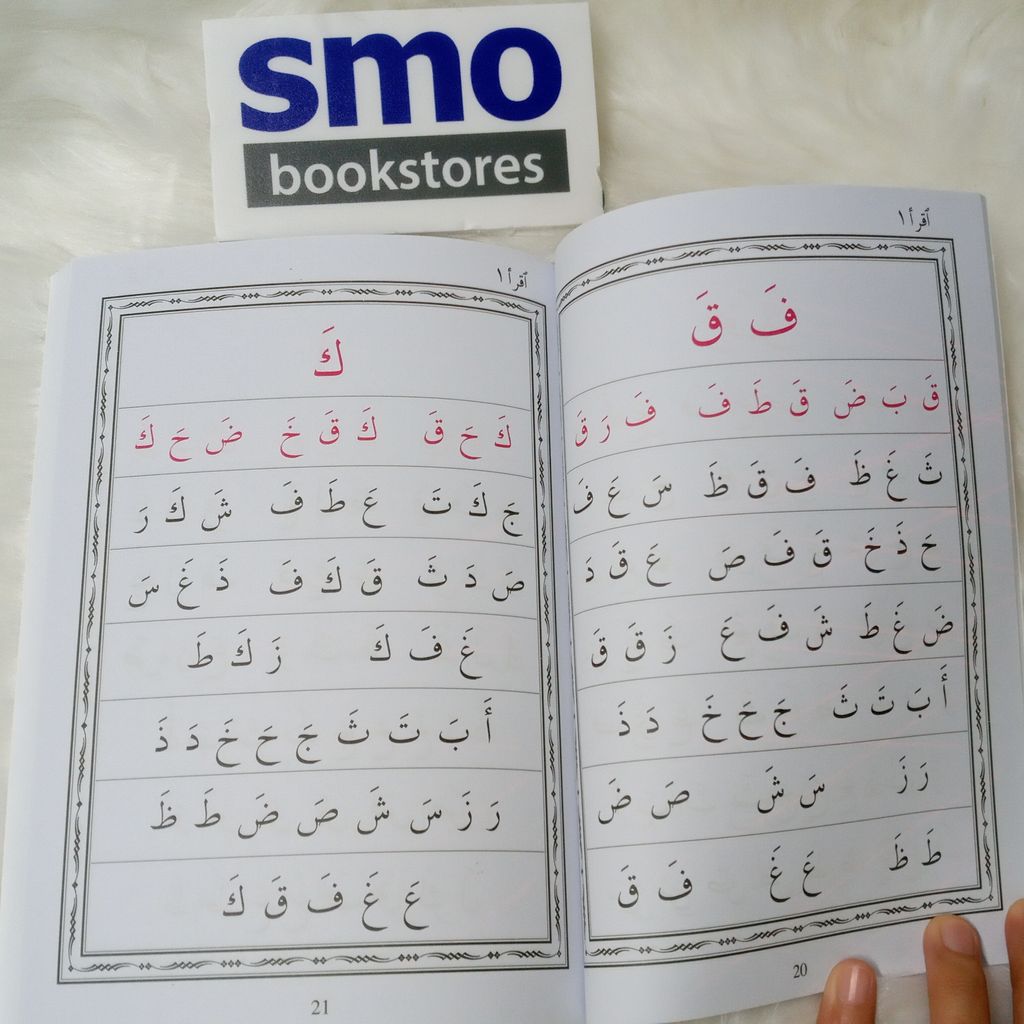 smo
bookstores
ٱقرأ ١
فَ قَ
قَ بَ ضَ قَ طَ فَ فَ رَ قَ
ثَ غَ ظَ فَ قَ ظَ سَ عَ فَ
حَ ذَ خَ قَ فَ صَ عَ قَ دَ
ضَ غَ طَ شَ فَ عَ زَ قَ قَ
أَ بَ تَ ثَ جَ حَ خَ دَ ذَ
رَ زَ سَ شَ صَ ضَ
طَ ظَ عَ غَ فَ قَ
20
ٱقرأ ١
كَ
كَ حَ قَ كَ قَ خَ ضَ حَ كَ
جَ كَ تَ عَ طَ فَ شَ كَ رَ
صَ دَ ثَ قَ كَ فَ ذَ غَ سَ
غَ فَ كَ زَ كَ طَ
أَ بَ تَ ثَ جَ حَ خَ دَ ذَ
رَ زَ سَ شَ صَ ضَ طَ ظَ
عَ غَ فَ قَ كَ
21